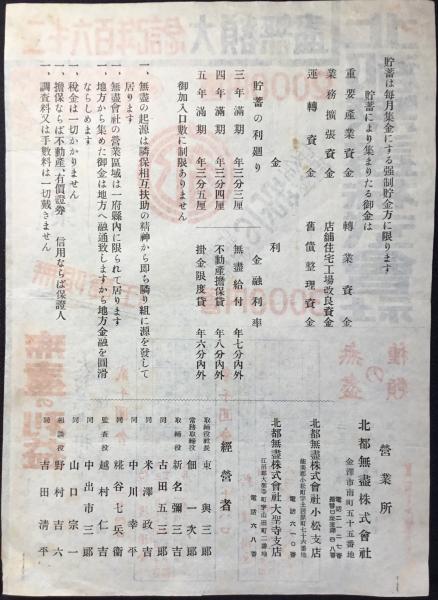 貯蓄は毎月集金にする强制貯金方に限ります
貯蓄により集まりたる御金は
重要產業資金　轉業資金
業務擴張資金　店舖住宅工場改良資金
運轉資金　舊債整理資金
金利
貯蓄の利廻り　金融利率
三年滿期　年三分三厘　無盡給付　年七分內外
四年滿期　年三分四厘　不動產擔保貸　年八分內外
五年滿期　年三分五厘　掛金限度貸　年六分內外
御加入口數に制限ありません
一、無盡の起源は隣保相互扶助の精神から卽ち隣り組に源を發して
居ります
一、無盡會社の營業區域は一府縣內に限られて居ります
一、地方から集めた御金は地方へ融通致しますから地方金融を圓滑
ならしめます
一、稅金は一切かかりません
一、擔保ならば不動產、有價證券　信用ならば保證人
一、調査料又は手數料は一切戴きません
營業所
北都無盡株式會社
金澤市南町五十五番地
電話二一二七番
北都無盡株式會社小松支店
電話六一〇番
北都無盡株式會社大聖寺支店
江沼郡大聖寺町字山田町二番地
電話六八番
經營者
取締役社長　東與三郎
常務取締役　佃一次郎
取締役　新名彌三吉
同　古田五三郎
同　米澤政吉
同　中川幸平
同　糀谷七兵衞
監査役　越村仁吉
同　中出市三郎
同　山口宗一
相談役　野村吉六
同　吉田淸平
種類
の
無盡